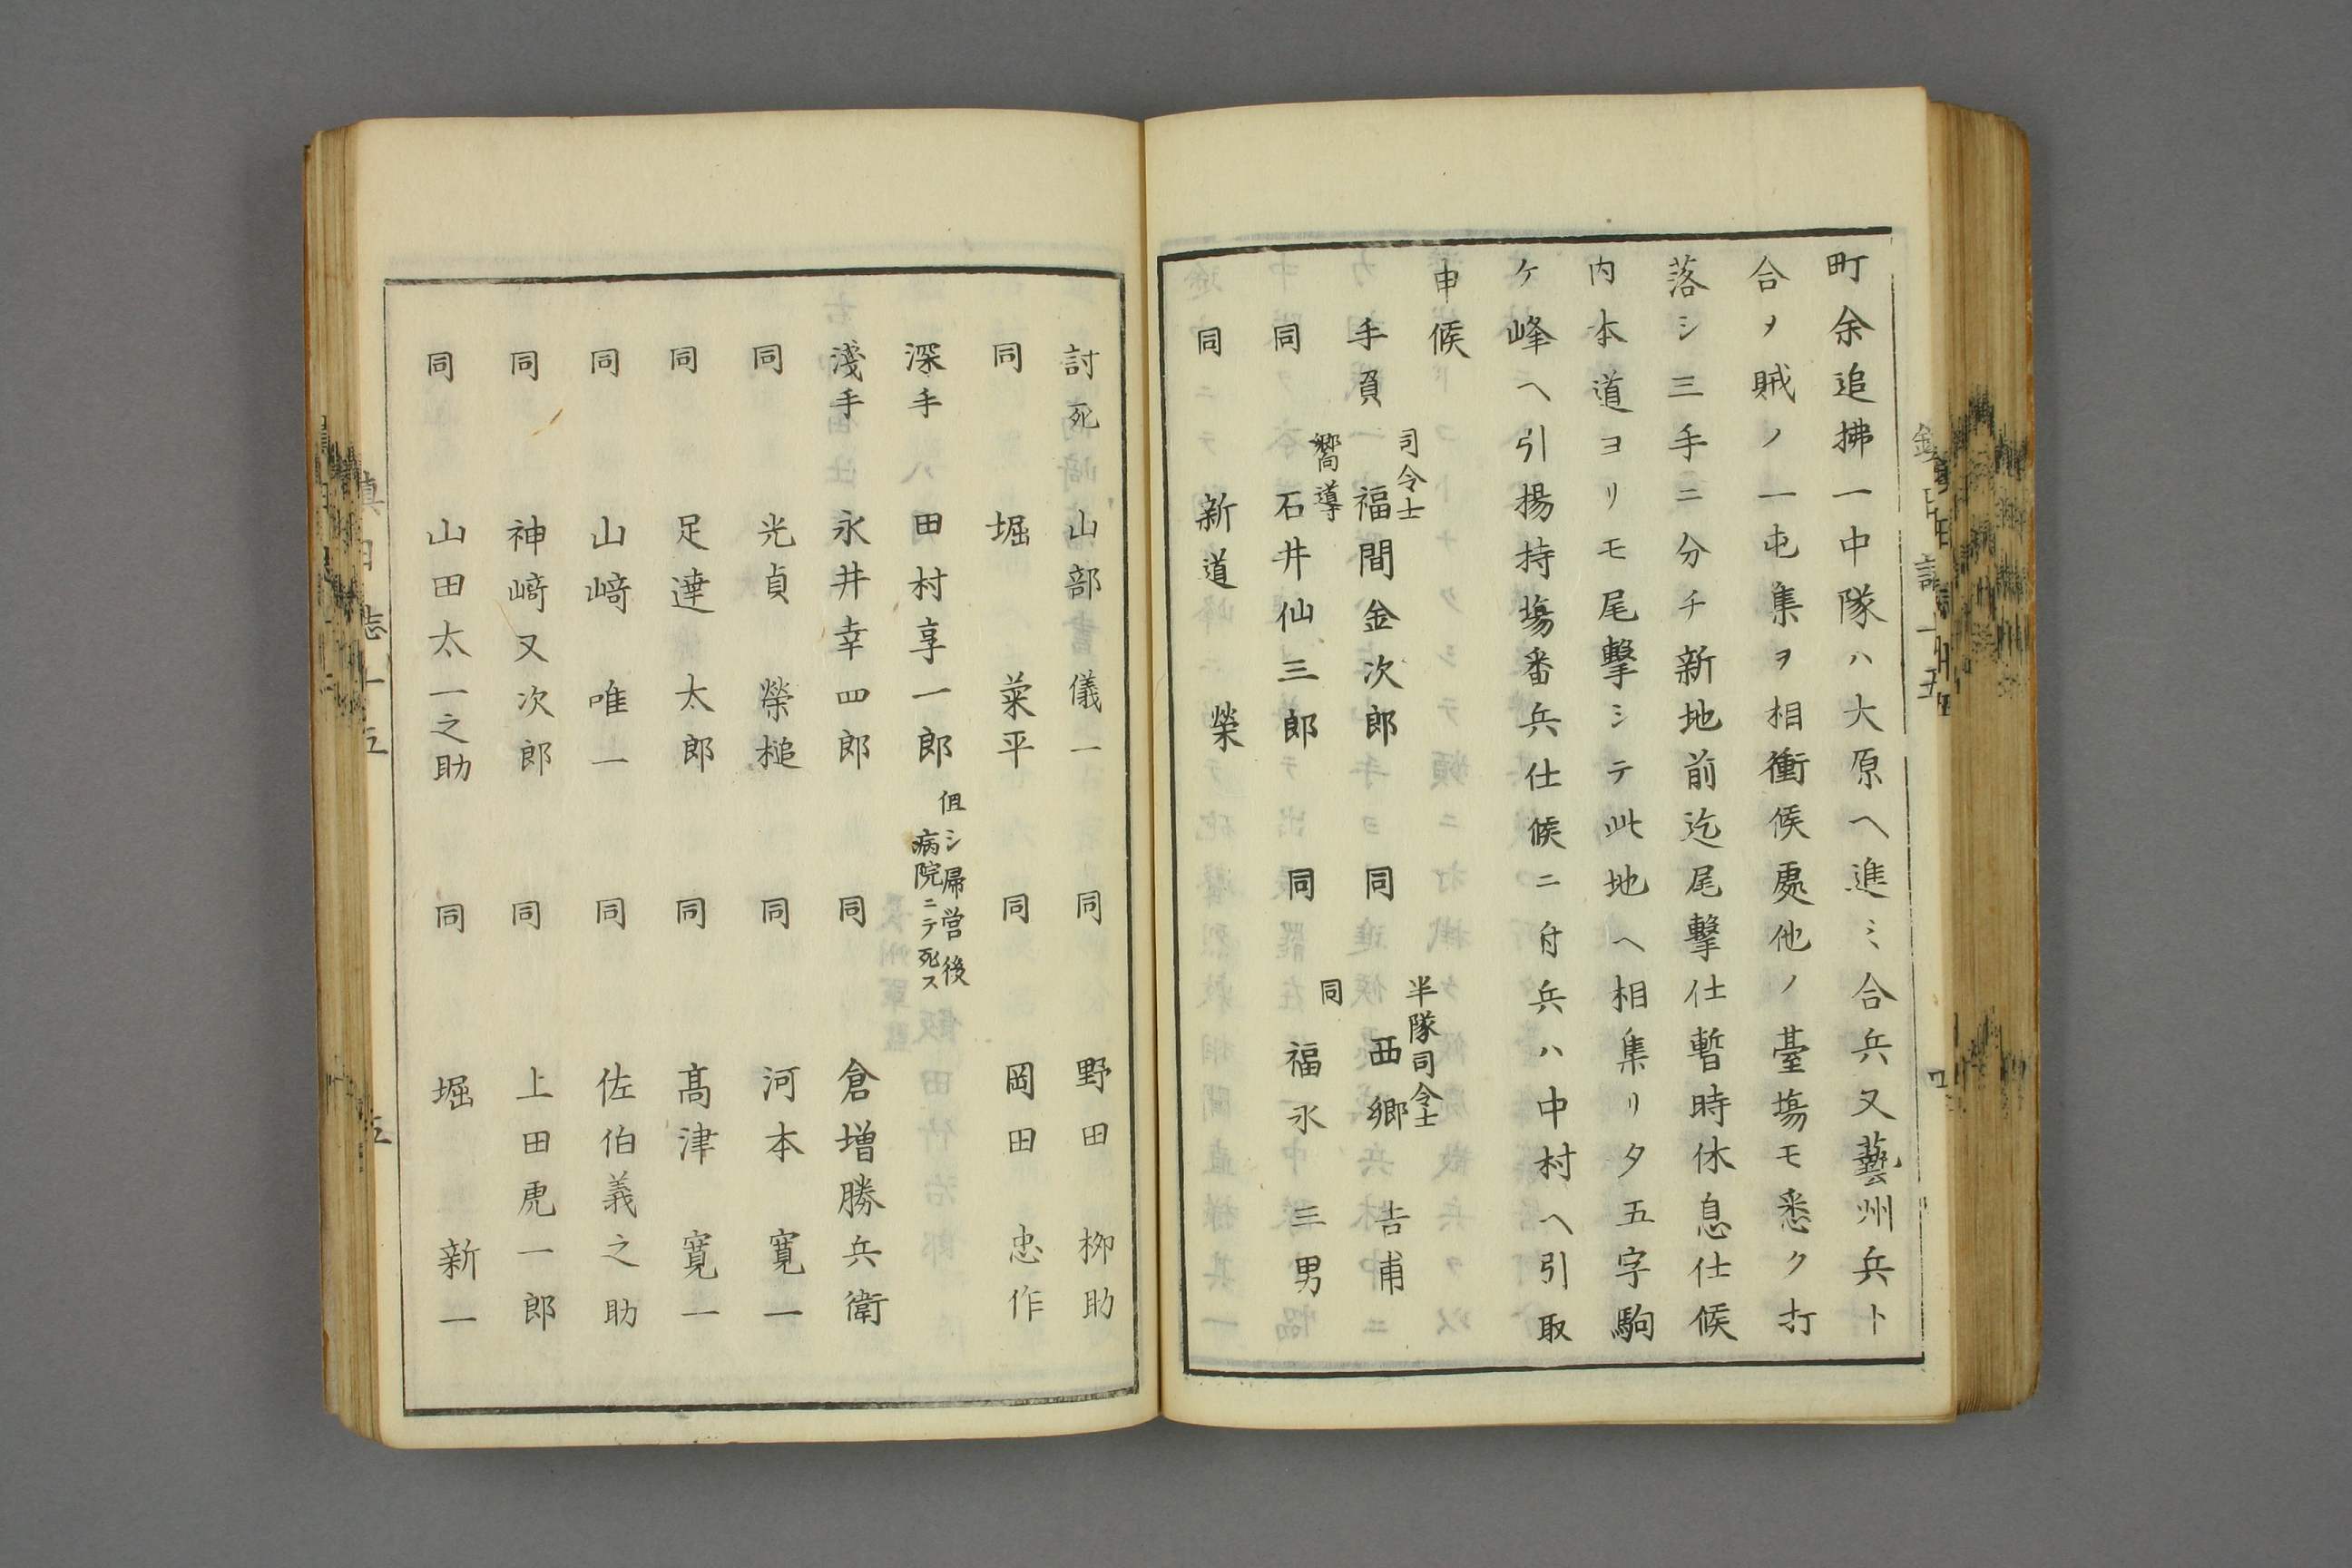 町余追拂一中隊ハ大原ヘ進ミ合兵又藝州兵ト
合ヲ賊ノ一屯集ヲ相衝候處他ノ臺塲モ悉ク打
落シ三手ニ分チ新地前迄尾擊仕暫時休息仕候
内本道ヨリモ尾擊シテ此地ヘ相集リタ五字駒
ケ峰ヘ引揚持塲番兵仕候ニ付兵ハ中村ヘ引取
申候
手負 司令士 福間金次郎 同 半隊司令士 西郷吉甫
同 嚮導 石井仙三郎 同 同 福永三男
同 新道榮
討死 山部儀一 同 野田柳助
同 堀菜平 同 岡田忠作
深手 田村享一郎 但シ帰営後病院ニテ死ス
淺手 永井幸四郎 同 倉増勝兵衛
同 光貞榮槌 同 河本寛一
同 足達太郎 同 髙津寛一
同 山﨑唯一 同 佐伯義之助
同 神﨑又次郎 同 上田虎一郎
同 山田太一之助 同 堀新一